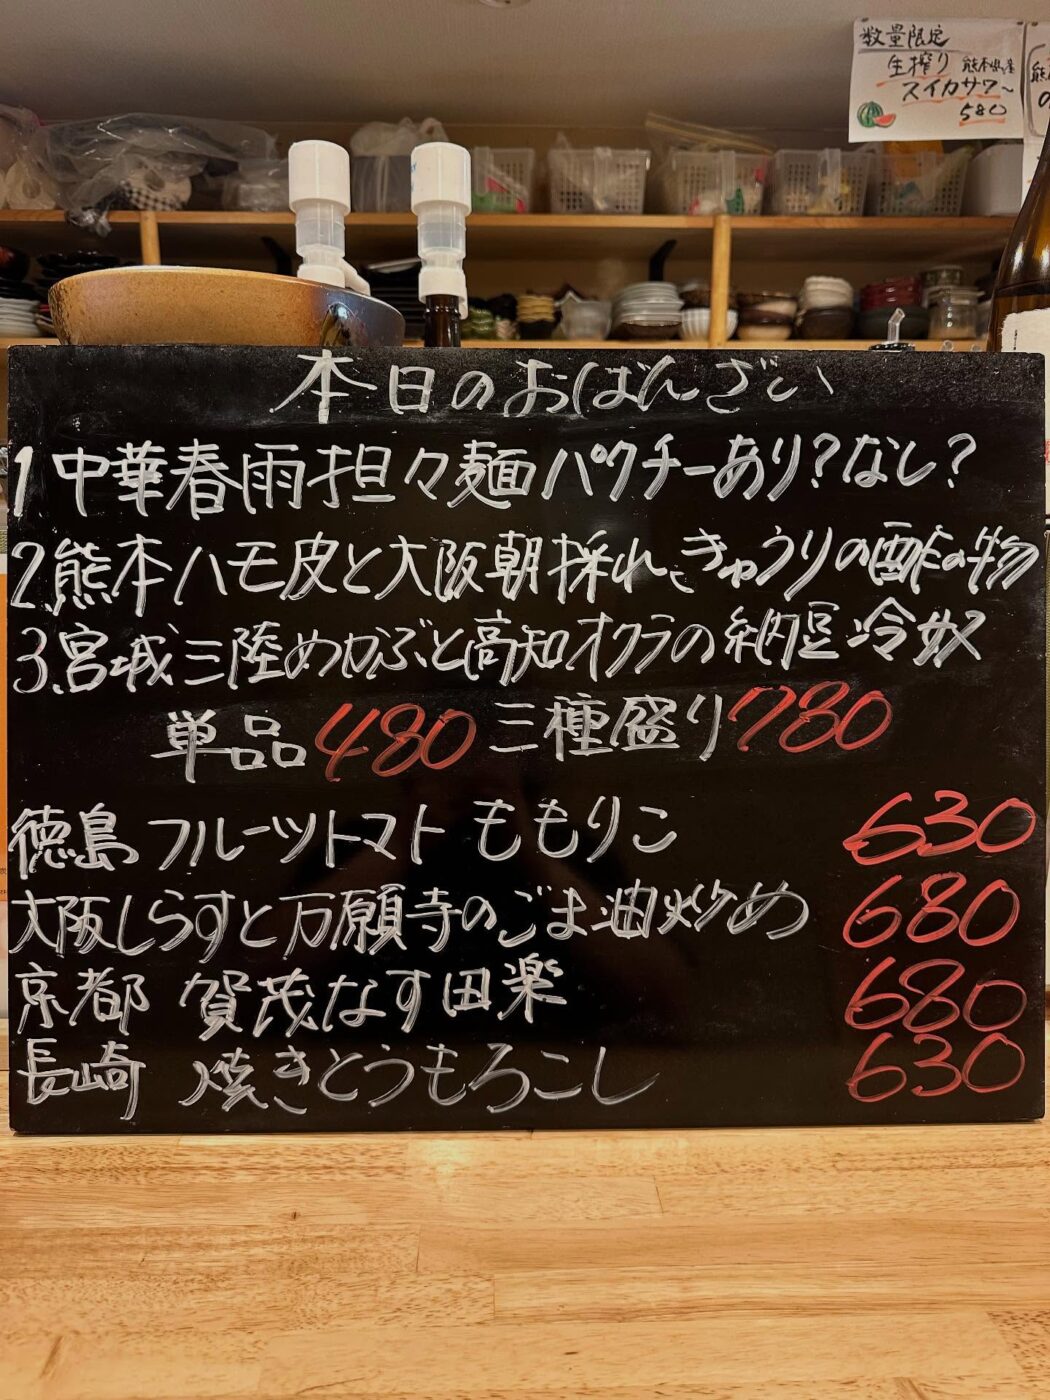 数量限定
生搾り 熊本県産
スイカサワ～
580
本日のおばんざい
1.中華春雨担々麺パクチーあり?なし?
2.熊本ハモ皮と大阪朝採れきゅうりの酢の物
3.宮城三陸めかぶと高知オクラの納豆冷奴
単品480 三種盛り780
徳島 フルーツトマト ももりこ 630
大阪しらすと万願寺のごま油炒め 680
京都 賀茂なす田楽 680
長崎 焼きとうもろこし 630